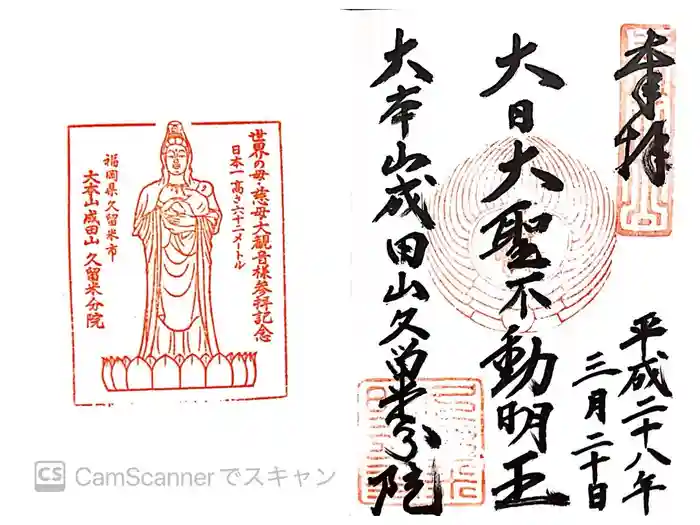 奉拝
平成二十八年
三月二十日
大日大聖不動明王
大本山成田山久留米分院
世界の母・慈母大観音様参拝記念
日本一高さ六十二メートル
福岡県久留米市
大本山成田山久留米分院
CS CamScannerでスキャン